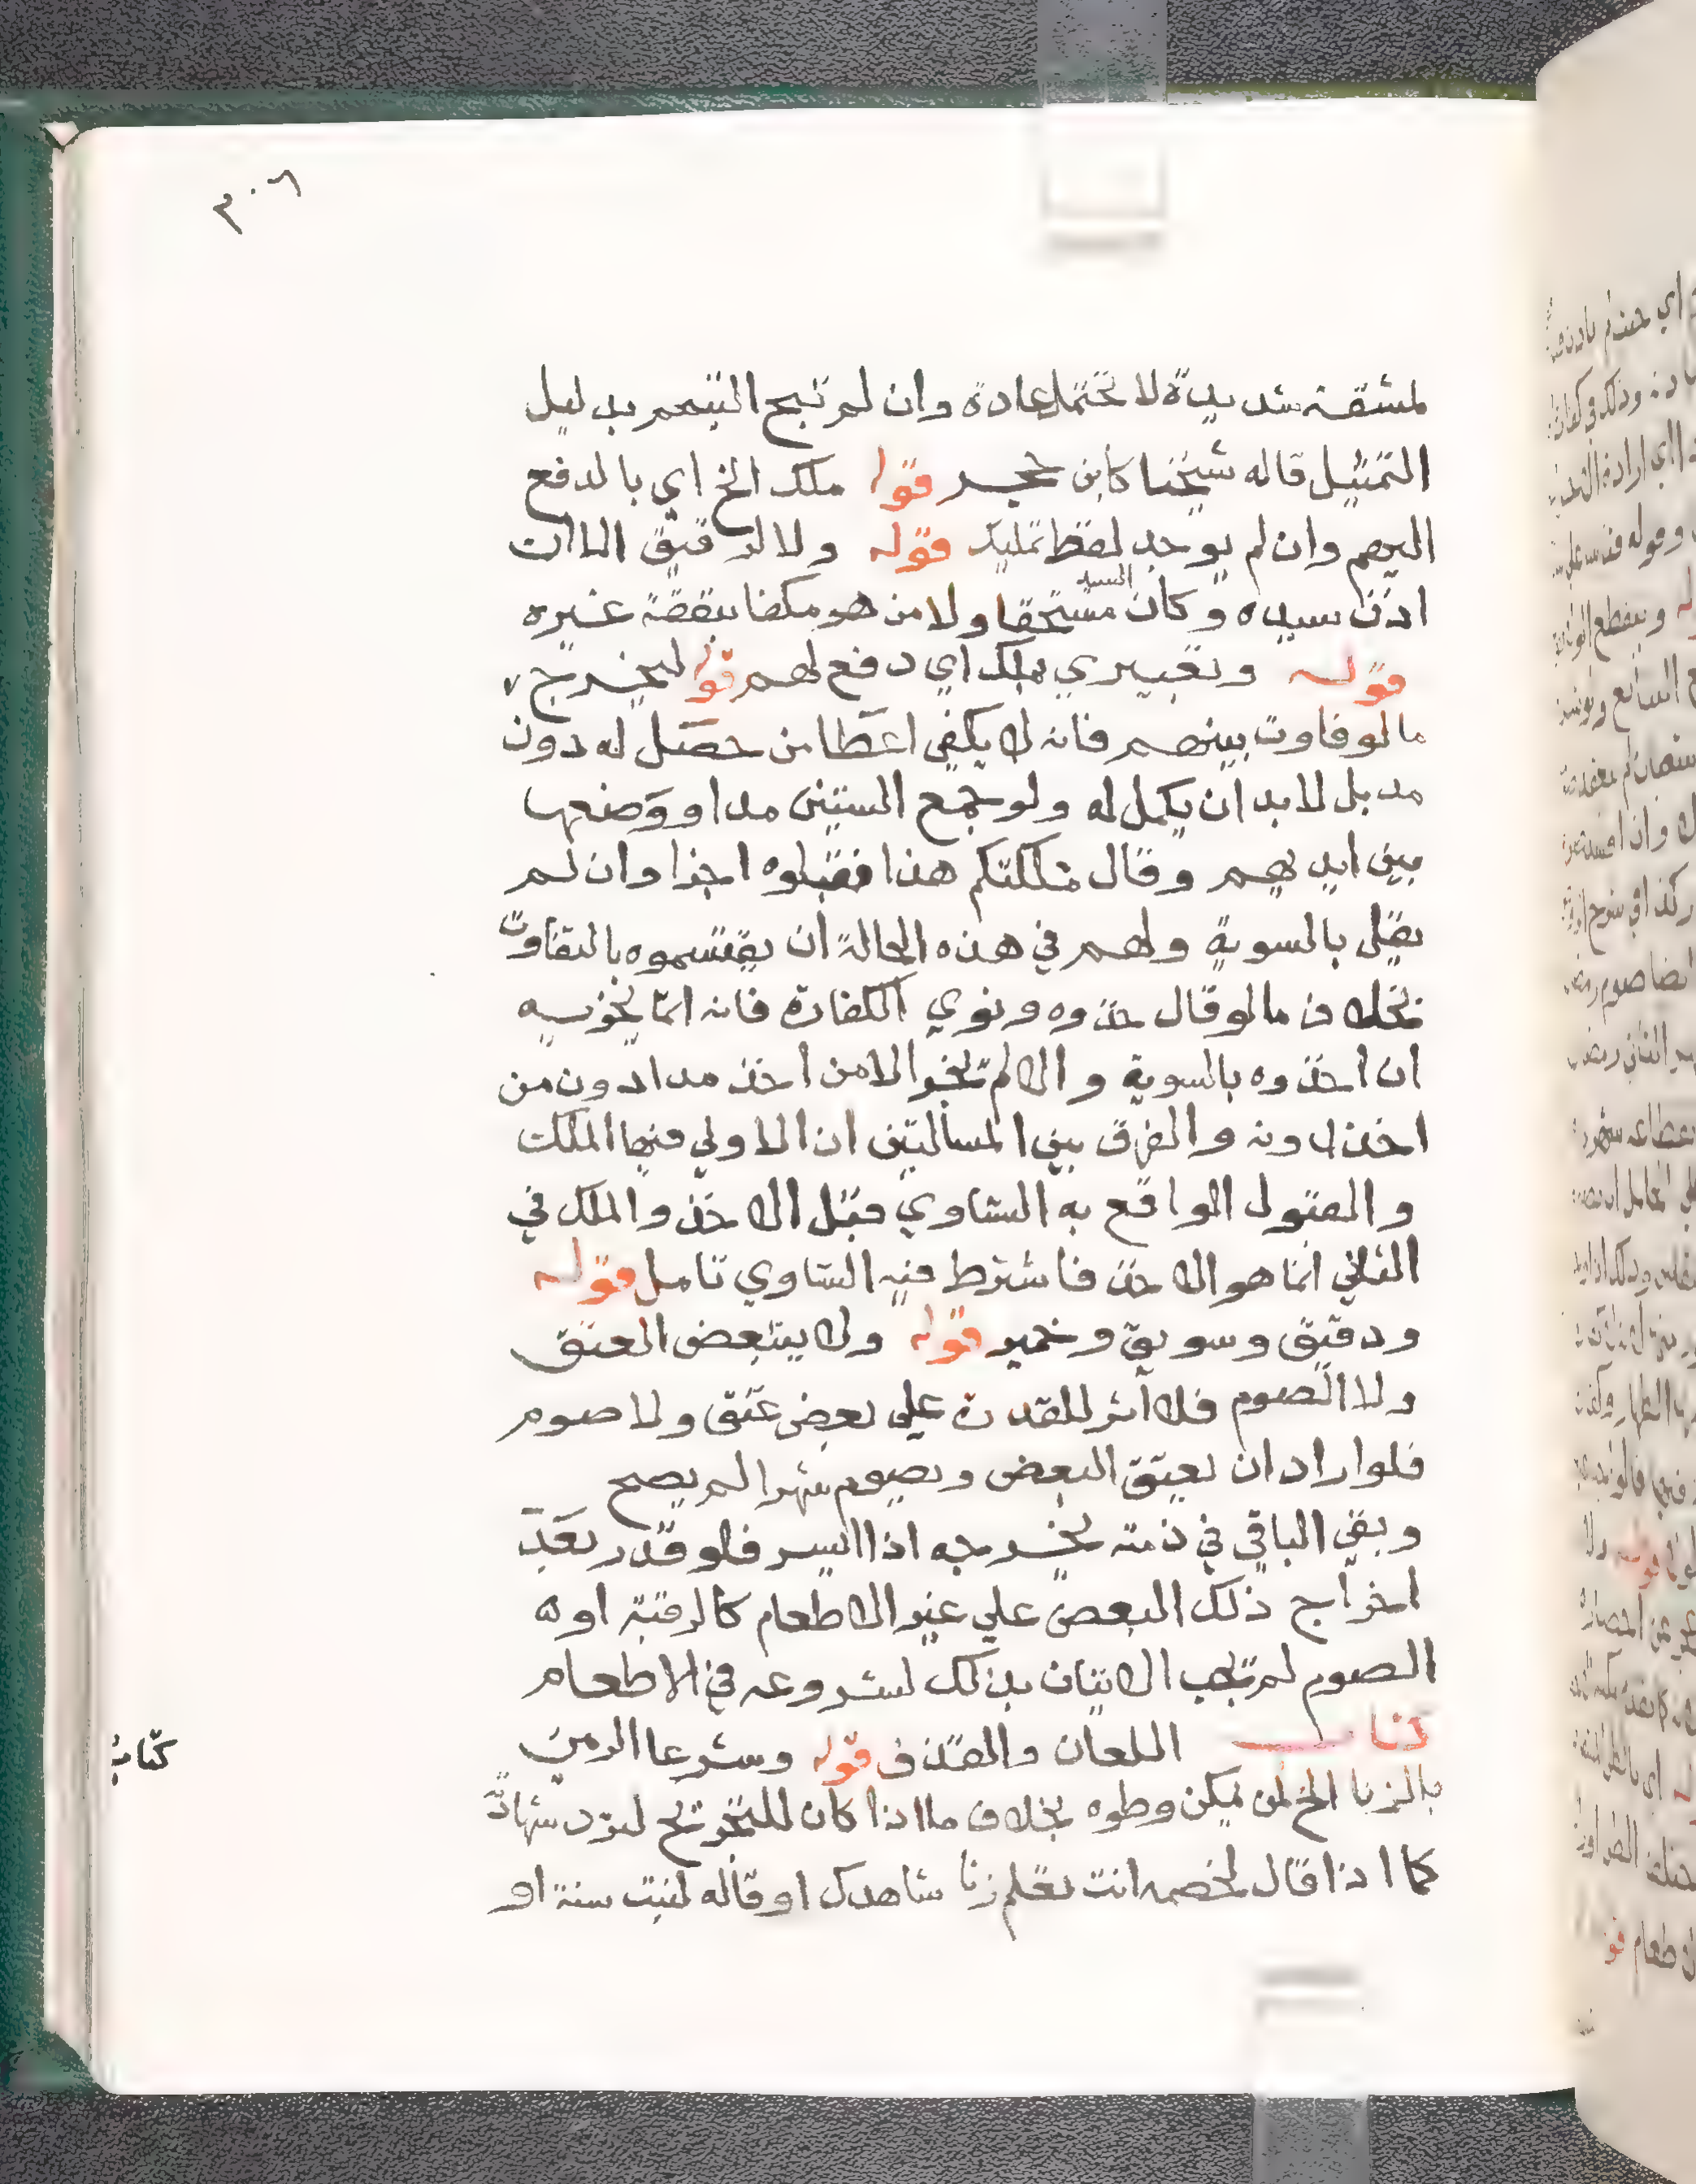 ٣٠٦
لمشقة شديدة لا تحتمل عادة وان لم تبح التيمم بدليل
التمثيل قاله شيخنا كابن حجر قوله ملك الخ اي بالدفع
اليهم وان لم يوجد لفظ تمليك قوله ولا لرقيق الا ان
اذن سيده وكان السيد مستحقا ولا من هو مكفا بنفقة غيره
قوله وتعبيري بملك اي دفع لهم قوله ليخرج
ما لو فاوت بينهم فانه لا يكفي اعطا من حصل له دون
مد بل لا بد ان يكمل له ولو جمع الستين مدا ووضعها
بين ايديهم وقال ملكتكم هذا فقبلوه اجزا وان لم
يقل بالسوية ولهم في هذه الحالة ان يقتسموه بالتفاوت
بخلاف ما لو قال خذوه ونوي الكفارة فانه انما يجزيه
ان اخذوه بالسوية والا لم تجز الا من اخذ مدا دون من
اخذ دونه والفرق بين المسالتين ان الاولي فيها الملك
والقبول الواقع به التساوي قبل الاخذ والملك في
الثاني انما هو الاخذ فاشترط فيه التساوي تامل قوله
ودقيق وسويق وخمير قوله ولا يتبعض العتق
ولا الصوم فلا اثر للقدرة علي بعض عتق ولا صوم
فلو اراد ان يعتق البعض ويصوم شهرا لم يصح
وبقي الباقي في ذمته يخرجه اذا ايسر فلو قدر بعد
اخراج ذلك البعض علي غير الاطعام كالرقبة او
الصوم لم تجب الاتيان بذلك لشروعه في الاطعام
كتاب اللعان والقذف قوله وشرعا الرمي
بالزنا الخ لمن يمكن وطوه بخلاف ما اذا كان للتجريح لترد شهادة
كما اذا قال لخصمه انت تعلم زنا شاهدك او قاله لبنت سنة او
كتاب